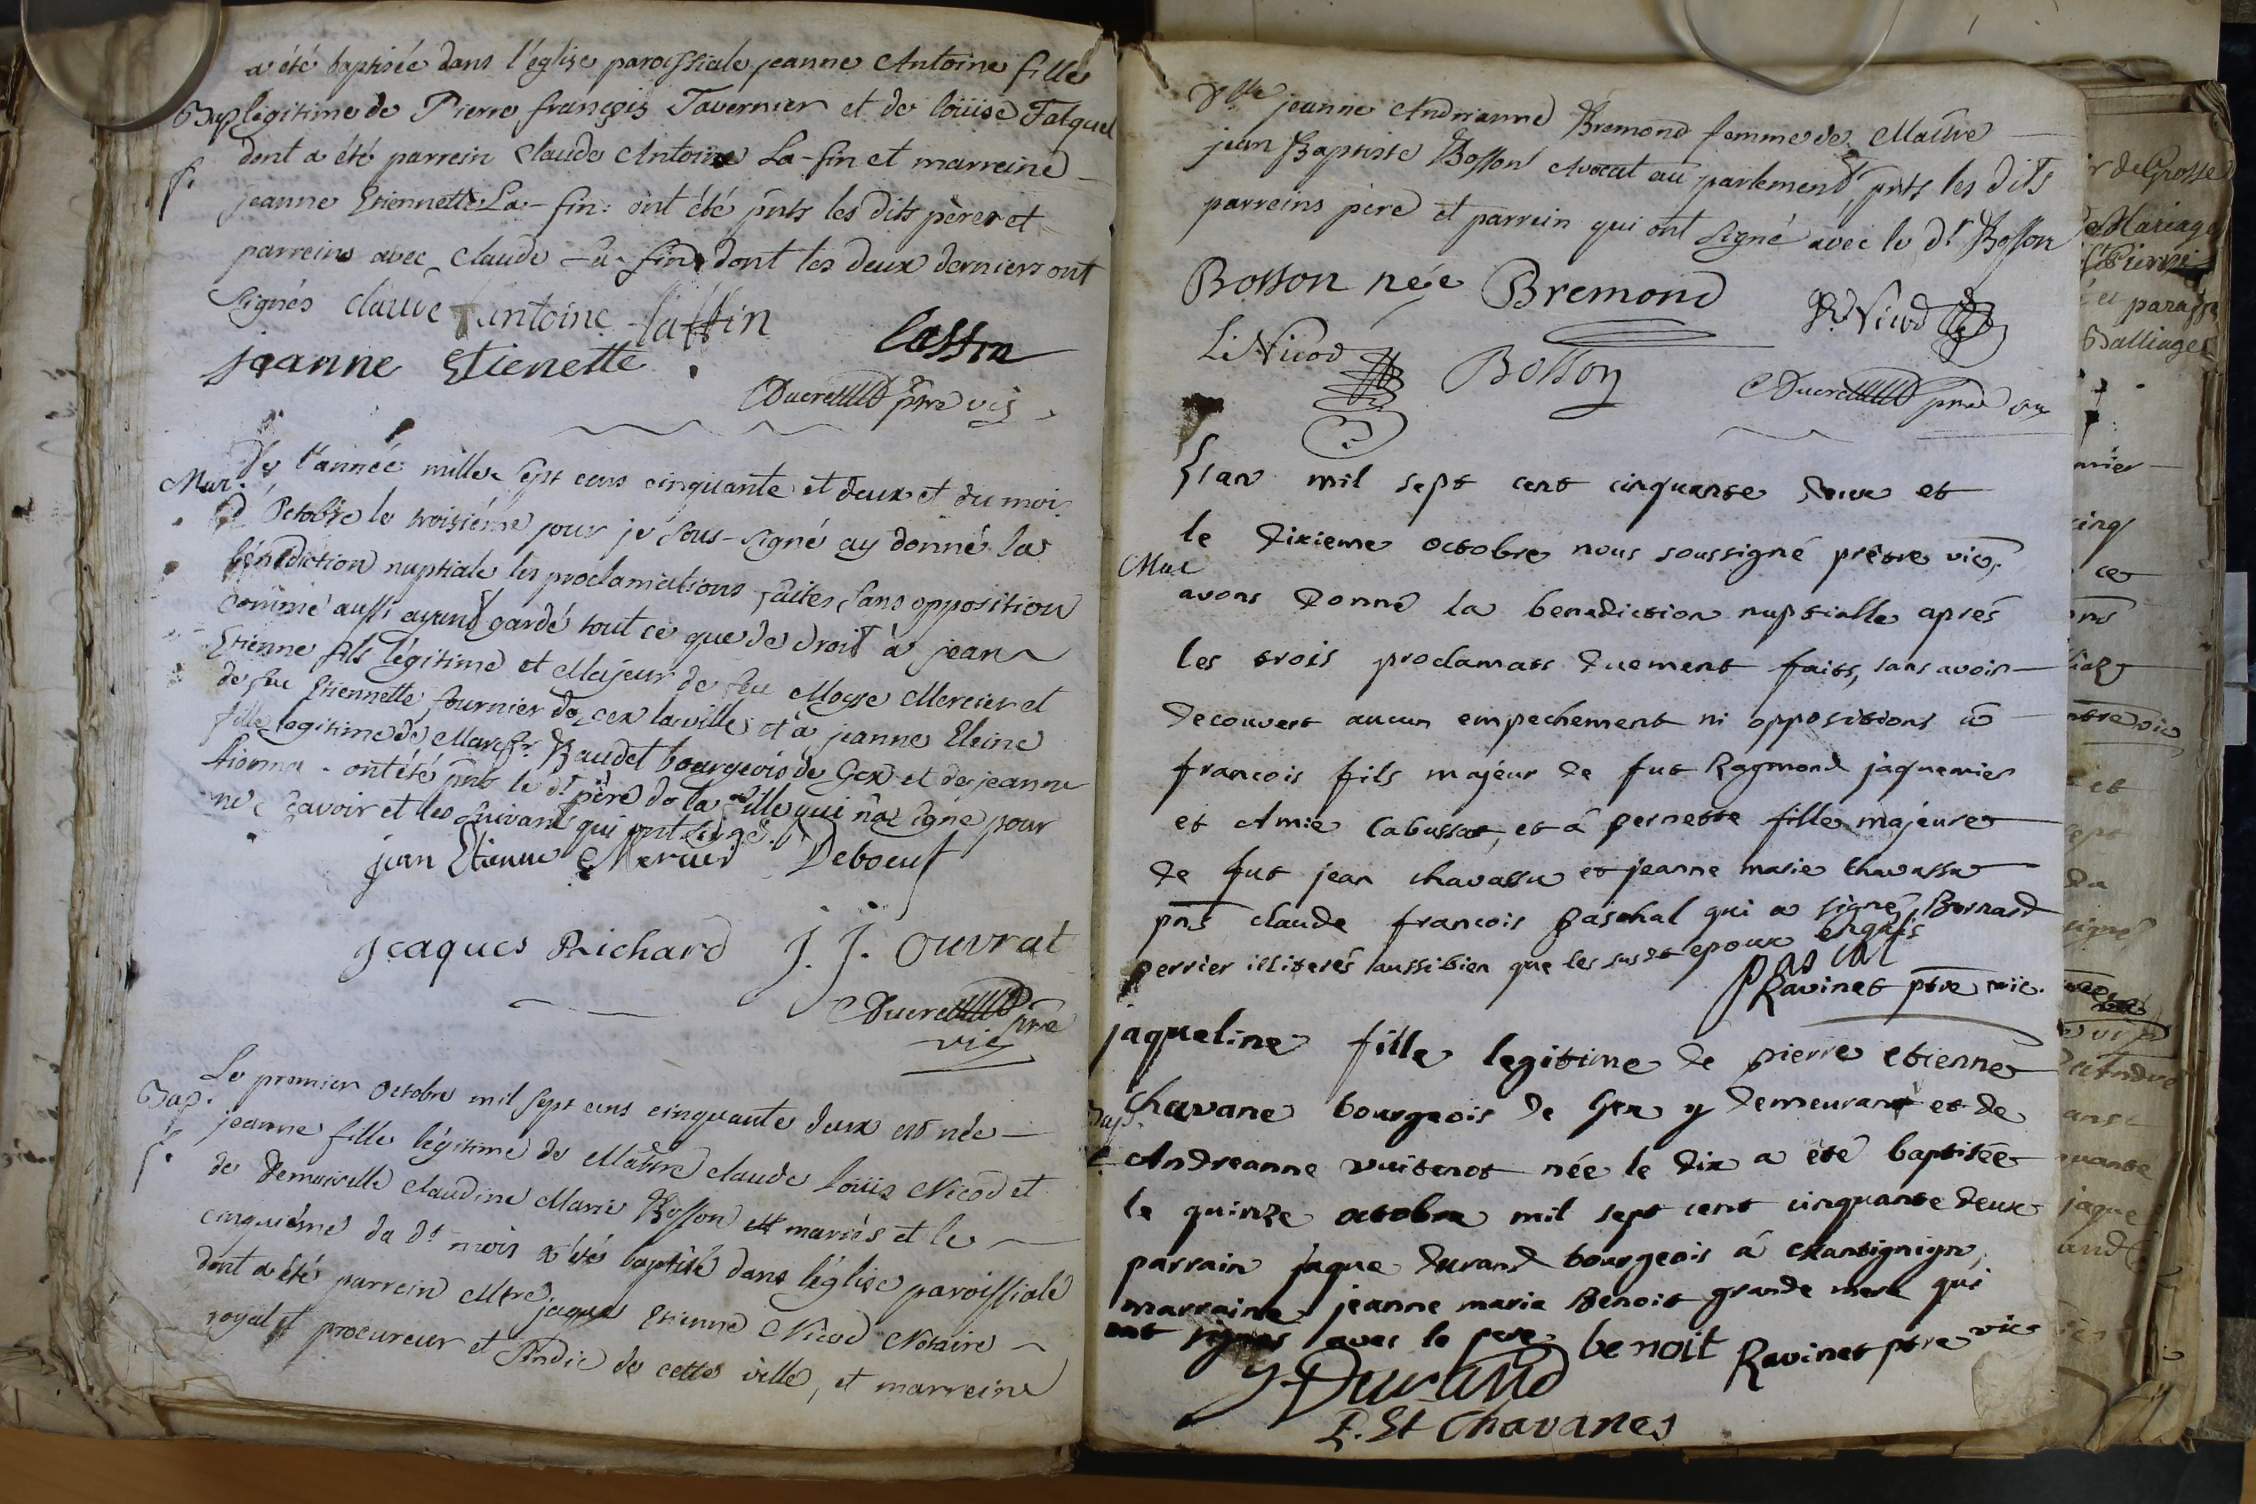 a été baptisée dans l'église paroissiale jeanne Antoine fille
Bap légitime de Pierre françois Tavernier et de loüise Falquet
f. dont a été parrein Claude Antoine La-fin et marreine
jeanne Etiennette La-fin: ont été pnts les dits pères et
parreins avec Claude La-fin dont les deux derniers ont
signés claude antoine laffin
jeanne Etienette
Ducret ptre vic
De l'année mille sept cens cinquante et deux et du mois
Mar. d'Octobre le troisiéme jour je sous-signé ay donné la
bénédiction nuptiale les proclamations faites sans opposition
comme aussi ayant gardé tout ce que de droit à jean
Etienne fils légitime et Majeur de feu Moyse Mercier et
de feu Etiennette fournier de gex la ville et à jeanne Eleine
fille legitime de Baudet bourgeois de Gex et de jeanne
ont été pnts le dt père de la fille qui n'a signé pour
ne sçavoir et les suivants qui ont signé.
jean Etienne Mercier Deboeuf
jeaques Richard J. J. Ouvrat
Ducret ptre
vic
Bap. Le premier Octobre mil sept cens cinquante deux est née
f. jeanne fille légitime de Maître Claude loüis Nicod et
de Demoiselle Claudine Marie Bosson mariés et le
cinquiéme du dt mois a été baptisé dans l'église paroissiale
dont a été parrein Mtre jaques Etienne Nicod Notaire
royal et procureur et Sindic de cette ville, et marreine
jeanne Andrianne Bremond femme de Maitre
jean Baptiste Bosson Avocat au parlement, pnts les dits
parreins père et parrein qui ont signé avec le dt Bosson
Bosson née Bremond Nicod
L. Nicod Bosson Ducret ptre vic
L'an mil sept cent cinquante deux et
le dixieme octobre nous soussigné prêtre vic.
Mar
avons donné la benediction nuptialle aprés
les trois proclamats duement faits, sans avoir
decouvert aucun empechement ni oppositions a
francois fils majeur de fut Raymond jaquemier
et Amie Cabussat, et á pernette fille majeure
de fut jean chavassu et jeanne marie chavassu
pns claude francois paschal qui a signé, Bernard
perrier illiterés aussibien que les susdt epoux enquis
pascal
Ravinet ptre vic.
jaqueline fille legitime de pierre etienne
Bap. chavane bourgeois de Gex y demeurant et de
f. Andreanne vuitenot née le dix a été baptisée
le quinze octobre mil sept cent cinquante deux
parrain jaque durand bourgeois á
marraine jeanne marie Benoit grande mere qui
ont signes avec le pere benoit Ravinet ptre vic
J Durand
P. Et Chavanes